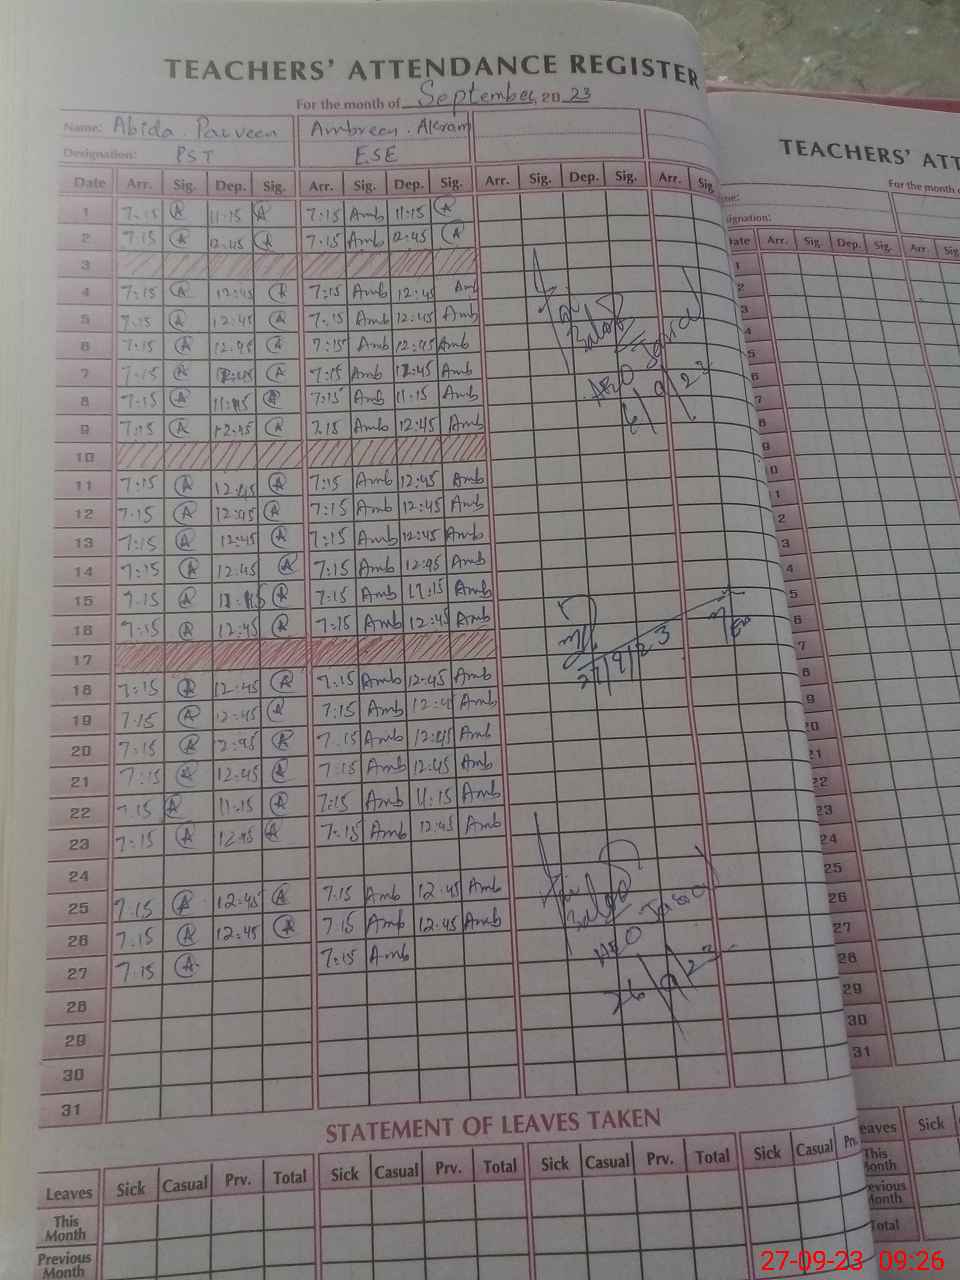 TEACHERS' ATTENDANCE REGISTER
For the month of September, 20 23
Name: Abida Parveen Ambreen Akram
Designation: PST ESE
Date Arr. Sig. Dep. Sig. Arr. Sig. Dep. Sig. Arr. Sig. Dep. Sig. Arr. Sig.
1 7:15 A 11:15 A 7:15 Amb 11:15 A
2 7:15 A 12:45 A 7:15 Amb 12:45 A
3
4 7:15 A 12:45 A 7:15 Amb 12:45 Amb
5 7:15 A 12:45 A 7:15 Amb 12:45 Amb
6 7:15 A 12:45 A 7:15 Amb 12:45 Amb
7 7:15 A 12:45 A 7:15 Amb 12:45 Amb
8 7:15 A 11:15 A 7:15 Amb 11:15 Amb
9 7:15 A 12:45 A 7:15 Amb 12:45 Amb
10
11 7:15 A 12:45 A 7:15 Amb 12:45 Amb
12 7:15 A 12:45 A 7:15 Amb 12:45 Amb
13 7:15 A 12:45 A 7:15 Amb 12:45 Amb
14 7:15 A 12:45 A 7:15 Amb 12:45 Amb
15 7:15 A 7:15 Amb 11:15 Amb
16 7:15 A 12:45 A 7:15 Amb 12:45 Amb
17
18 7:15 A 12:45 A 7:15 Amb 12:45 Amb
19 7:15 A 12:45 A 7:15 Amb 12:45 Amb
20 7:15 A 12:45 A 7:15 Amb 12:45 Amb
21 7:15 A 12:45 A 7:15 Amb 12:45 Amb
22 7:15 A 11:15 A 7:15 Amb 11:15 Amb
23 7:15 A 12:45 A 7:15 Amb 12:45 Amb
24
25 7:15 A 12:45 A 7:15 Amb 12:45 Amb
26 7:15 A 12:45 A 7:15 Amb 12:45 Amb
27 7:15 A 7:15 Amb
28
29
30
31
AEO
6/9/23
21/9/23
AEO
26/9/23
STATEMENT OF LEAVES TAKEN
Leaves Sick Casual Prv. Total Sick Casual Prv. Total Sick Casual Prv. Total Sick Casual Prv.
This Month
Previous Month
TEACHERS' ATT
For the month
Arr. Sig. Dep. Sig. Arr. Sig
28
29
30
31
Sick
27-09-23 09:26